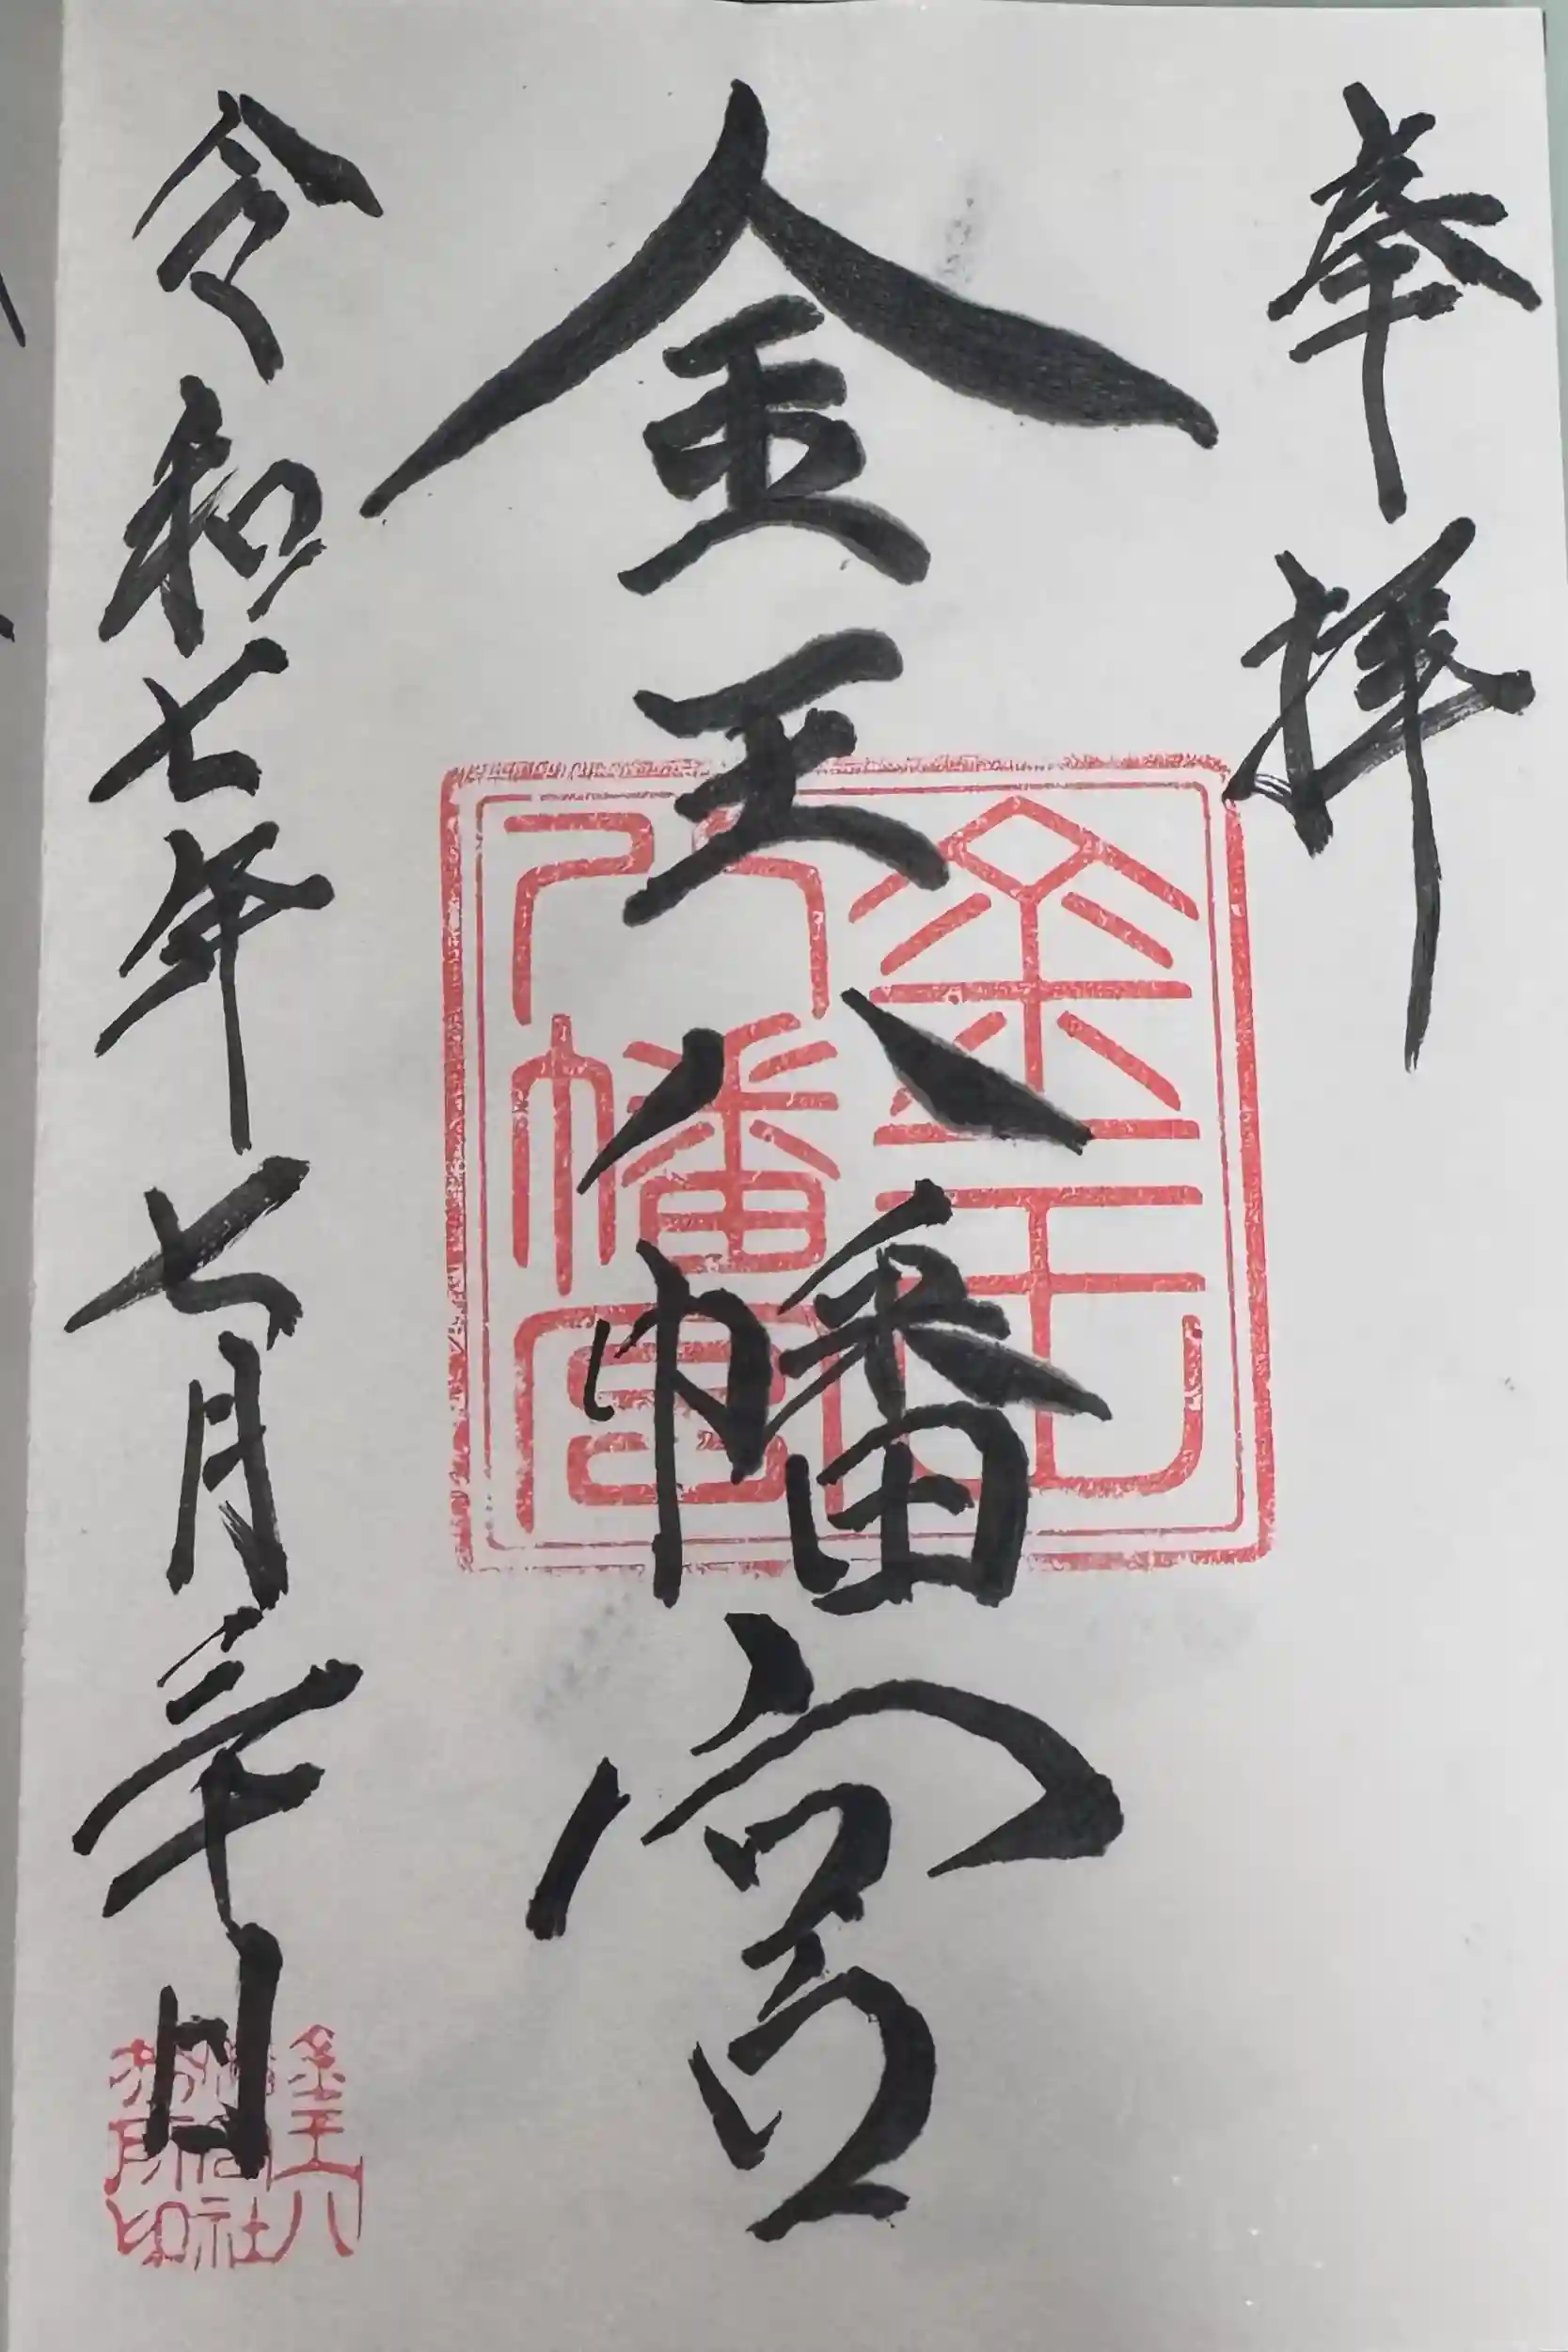 奉拝
金王八幡宮
令和七年七月三十日
金王八幡宮
金王八幡宮社務所印